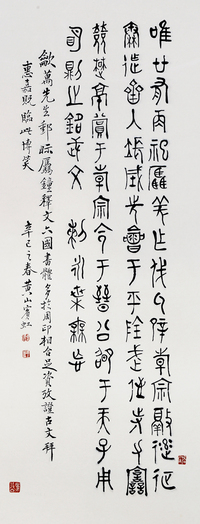 唯廿又再祀驫羌乍戎氒辟倝宗敲逹征
秦迮齊入長城先會于平陰武侄寺力
敓楚京賞于倝宗令于晉公卲于天子用
明則之銘武文剌永枼毋忘
萬先生郵眎屬鐘釋文六國書體多於周印相合足資攷證古文拜
惠嘉貺臨此博笑
辛巳之春黃山賓虹